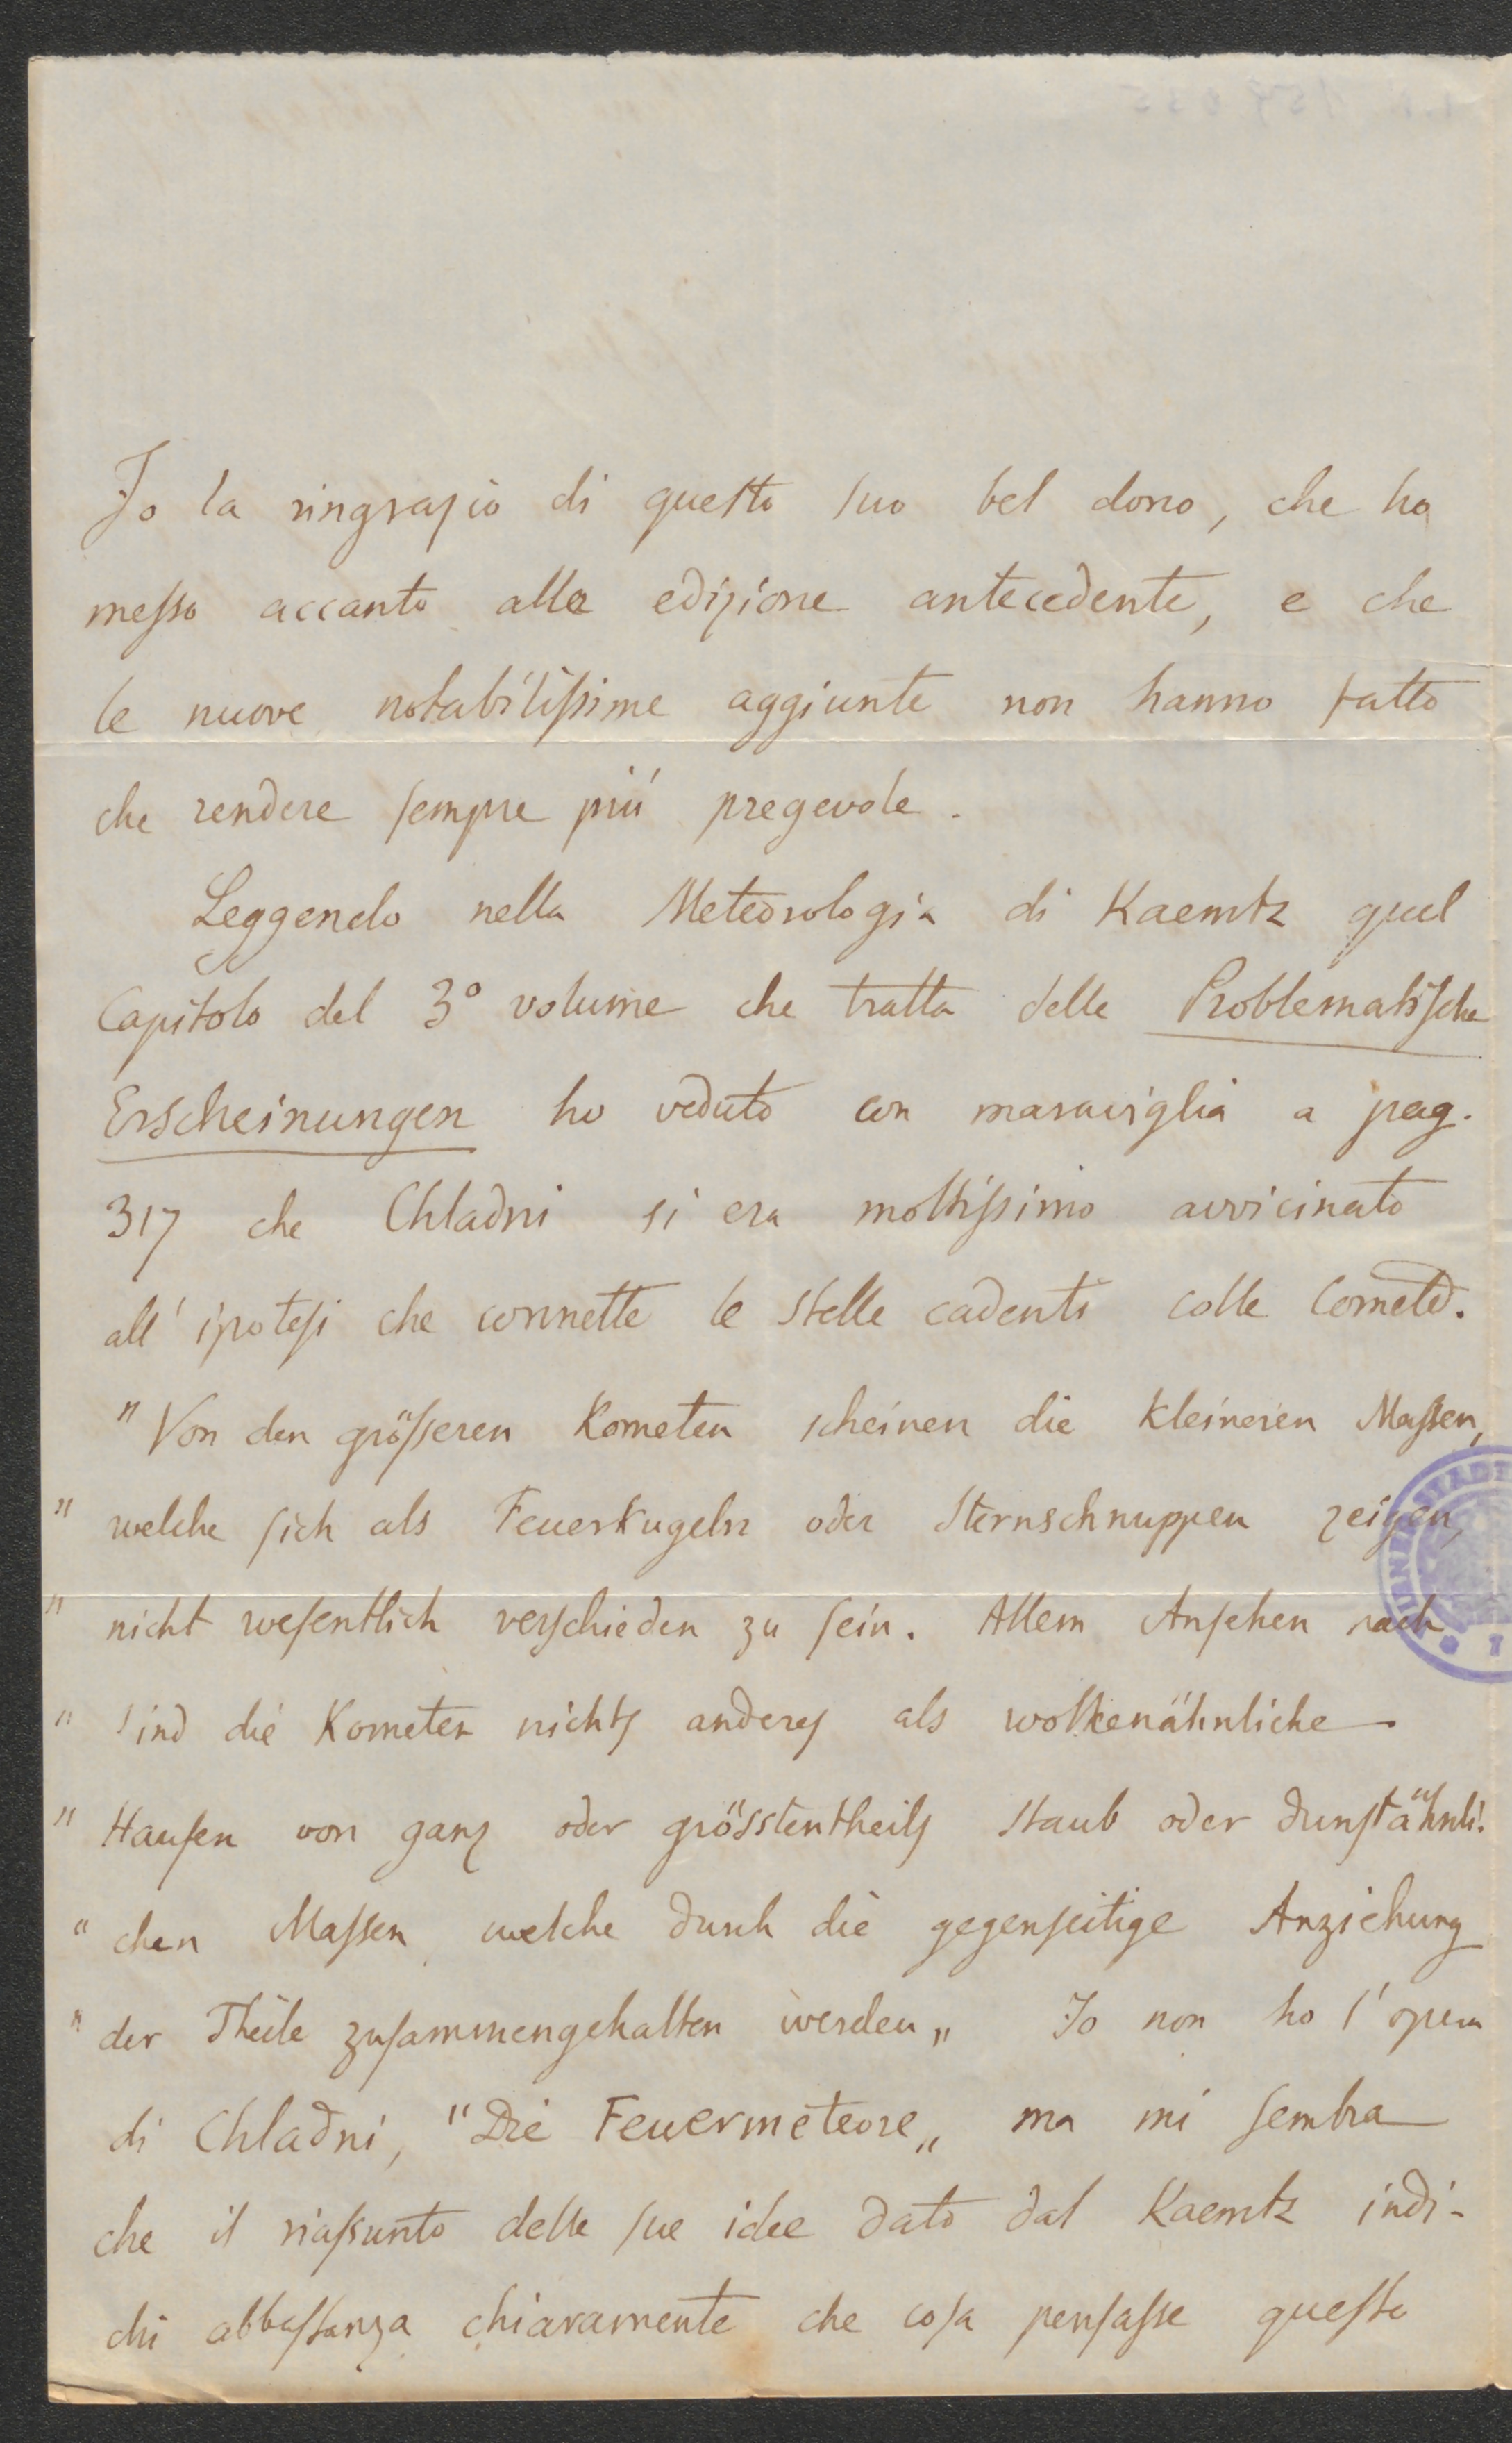 Io la ringrazio di questo suo bel dono, che ho
messo accanto alla edizione antecedente, e che
le nuove notabilissime aggiunte non hanno fatto
che rendere sempre più pregevole.
Leggendo nella Meteorologia di Kaemtz quel
Capitolo del 3º volume che tratta delle Problematische
Erscheinungen ho veduto con maraviglia a pag.
317 che Chladni si era moltissimo avvicinato
all'ipotesi che connette le stelle cadenti colle Comete.
"Von den grösseren Kometen scheinen die kleineren Massen,
" welche sich als Feuerkugeln oder Sternschnuppen zeigen,
" nicht wesentlich verschieden zu sein. Allem Ansehen nach
" sind die Kometen nichts anders als wolkenähnliche
" Haufen von ganz oder grösstentheils staub oder dunstähnli-
" chen Massen welche durch die gegenseitige Anziehung
" der Theile zusammengehalten werden„ Io non ho l'opera
di Chladni, "Die Feuermeteore„ ma mi sembra
che il riassunto delle sue idee dato dal Kaemtz indi-
chi abbastanza chiaramente che cosa pensasse questo